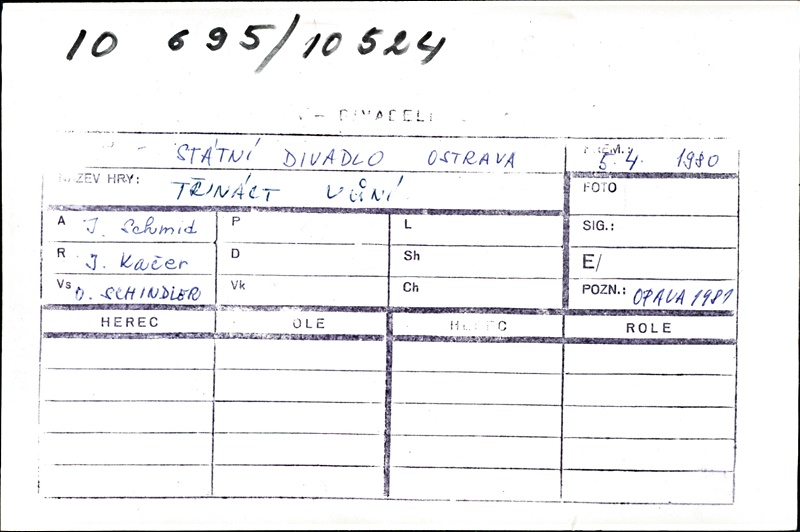 10 695/10 524
DIVADEL
STÁTNÍ DIVADLO OSTRAVA
PREM.: 5. 4. 1980
NÁZEV HRY: TŘINÁCT VŮNÍ
FOTO
A J. Schmid P L SIG.:
R J. Kačer D Sh E/
Vs O. SCHINDLER Vk Ch POZN.: OPAVA 1981
HEREC ROLE HEREC ROLE